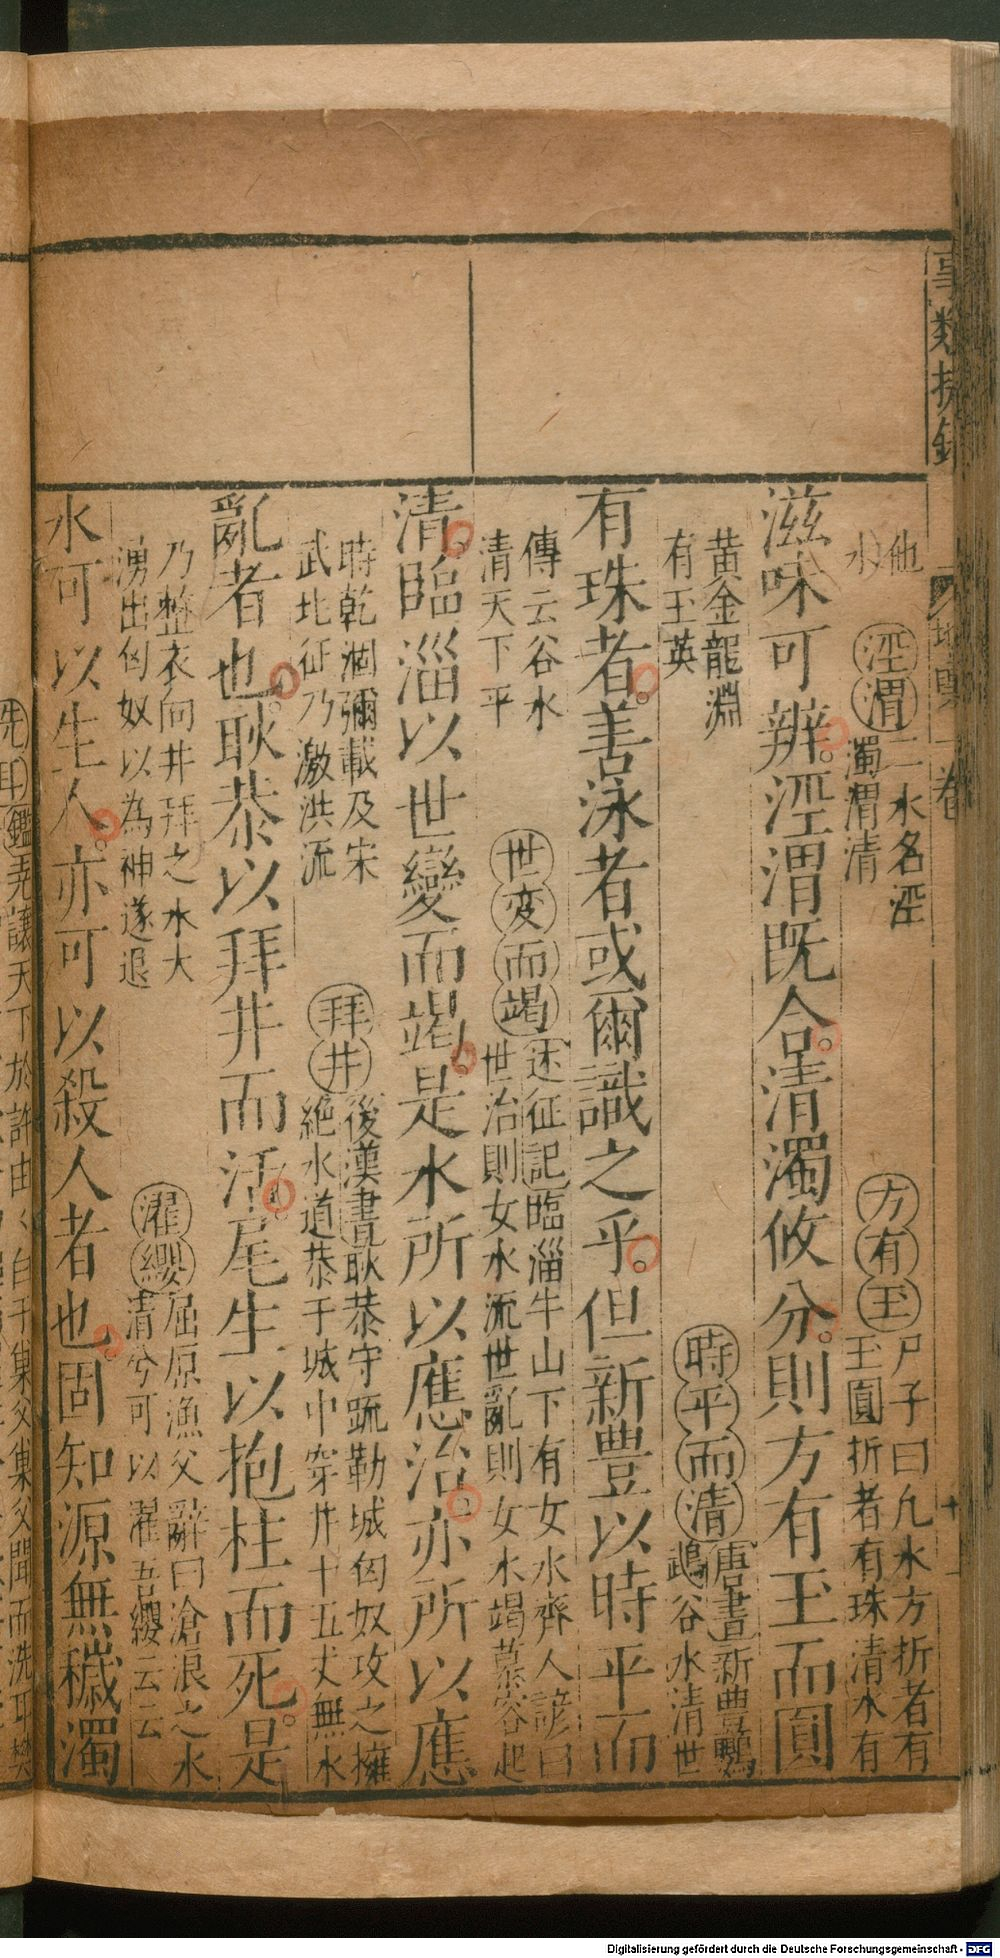 事類捷錄
地輿
一卷
十一
他
水
涇渭
二水名涇
濁渭清
方有玉
尸子曰凢水方折者有
玉圓折者有珠清水有
滋味可辨。涇渭既合。清濁攸分。則方有玉而圓
黄金龍淵
有玉英
時平而清
唐書新豊鸚
鵡谷水清世
有珠者。善泳者或爾識之乎。但新豊以時平而
傳云谷水
清天下平
世变而竭
述征記臨淄牛山下有女水齊人諺曰
世治則女水流世亂則女水竭慕容起
清。臨淄以世變而竭。是水所以應治。亦所以應
時乾涸彌載及宋
武北征乃激洪流
拜井
後漢書耿恭守䟽勒城匈奴攻之擁
絶水道恭于城中穿井十五丈無水
亂者也。耿恭以拜井而活。尾生以抱柱而死。是
乃整衣向井拜之水大
湧出匈奴以為神遂退
濯纓
屈原漁父辭曰滄浪之水
清兮可以濯吾纓云云
水可以生人。亦可以殺人者也。固知源無穢濁
洗耳
鑑堯讓天下於許由
巢父巢父聞而洗耳樊
Digitalisierung gefördert durch die Deutsche Forschungsgemeinschaft - DFG